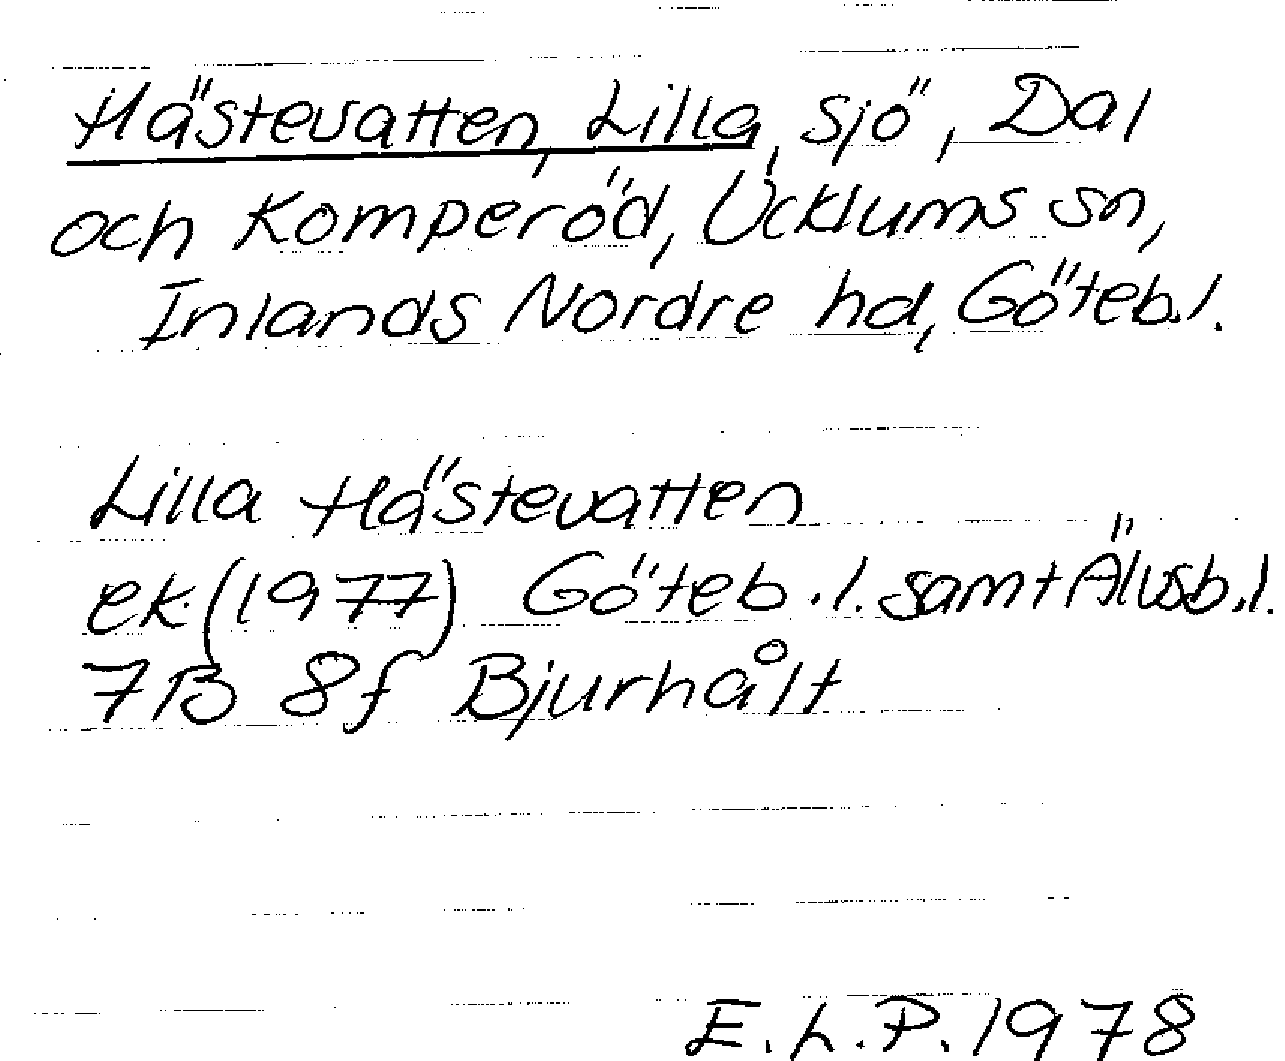 Hästevatten, Lilla, sjö, Dal
och Komperöd, Ucklums sn,
Inlands Nordre hd, Göteb.l.
Lilla Hästevatten
ek.(1977) Göteb.l. samt Älvsb.l.
7B 8f Bjurhålt
E.L.P. 1978